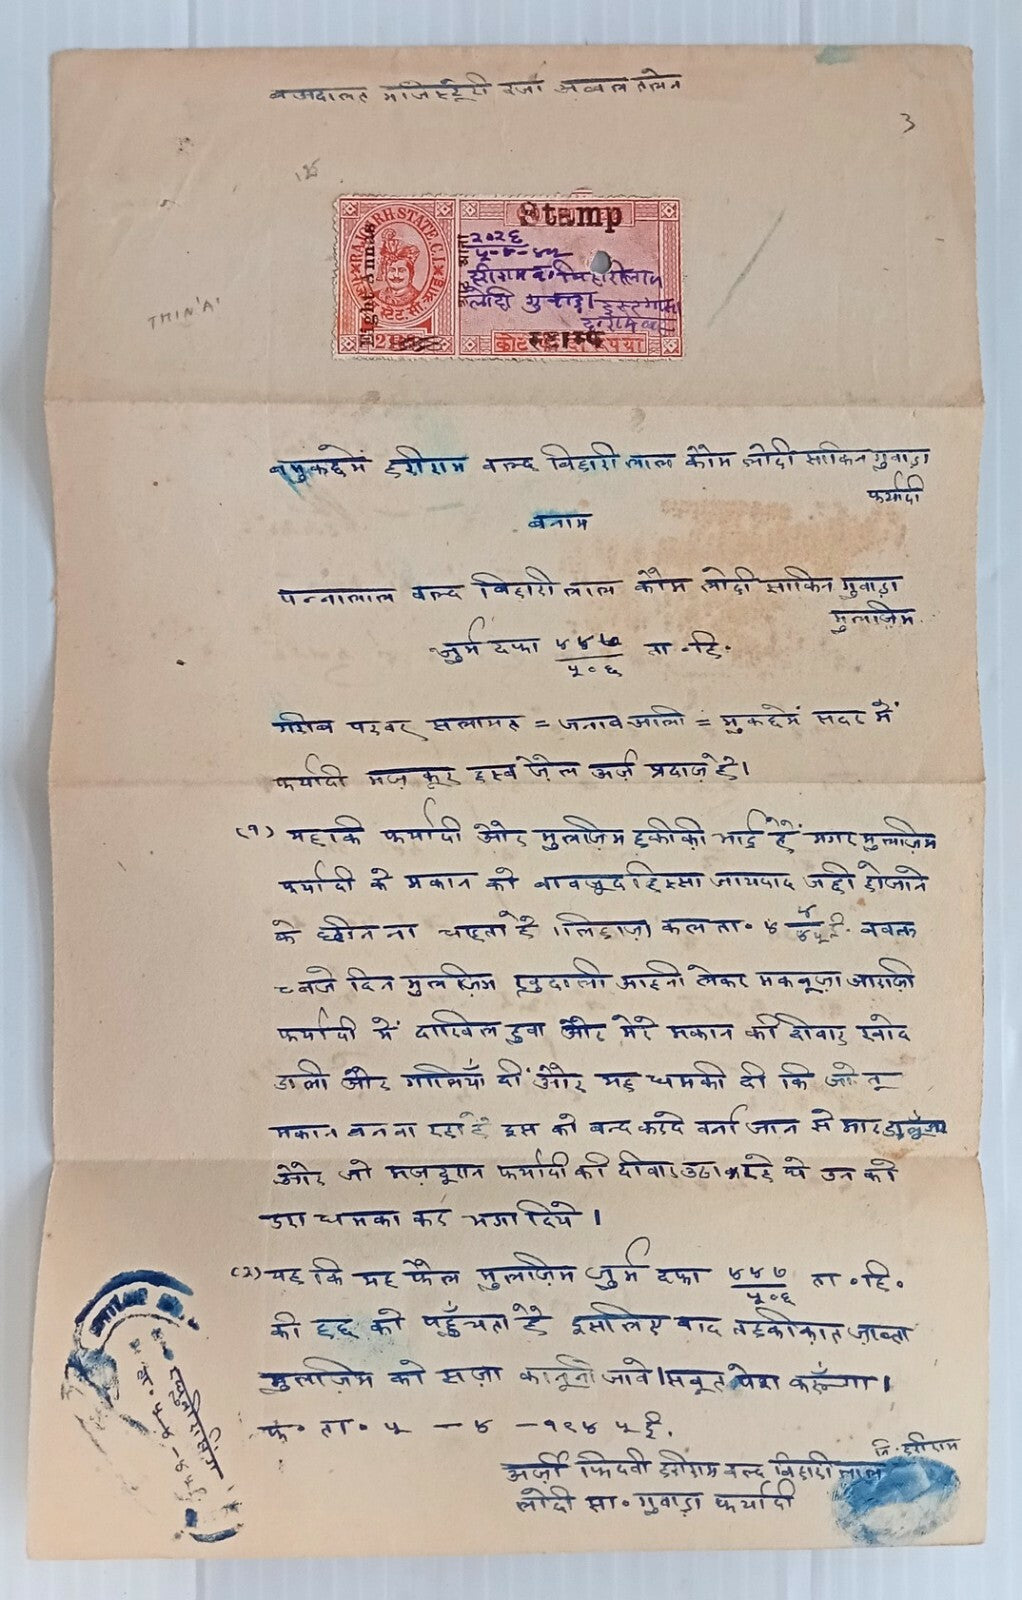 बअदालत मजिस्ट्रेटी दर्जा अव्वल तलेन
3
THIN 'A'
RAJGARH STATE C.I.
Eight Annas
Stamp
२०२६
५-४-४५
लोदी गुवाड़ा
स्टाम्प
बमुकद्दमे हरीराम वल्द बिहारी लाल कौम लोदी साकिन गुवाड़ा
फर्यादी
बनाम
पन्नालाल वल्द बिहारी लाल कौम लोदी साकिन गुवाड़ा
मुलाज़िम
जुर्म दफा ४४७
५०६ ता॰ हि॰
गरीब परवर सलामत = जनाब आली = मुकद्दमे सदर में
फर्यादी मज़कूर हस्ब ज़ेल अर्ज़ प्रदाज़ है।
(१) यहकि फर्यादी और मुलाज़िम हकीकी भाई हैं मगर मुलाज़िम
फर्यादी के मकान को बावजूद हिस्सा जायदाद जद्दी होजाने
के छीन ना चाहता है। लिहाज़ा कल ता॰ ४ ४ ४५ ई. बवक्त
८ बजे दिन मुलाज़िम कुदाली आहनी लेकर मकबूज़ा आराज़ी
फर्यादी में दाखिल हुवा और मेरे मकान की दीवार खोद
डाली और गालियाँ दीं और यह धमकी दी कि जो तू
मकान बनवा रहा है इस को बन्द करदे वर्ना जान से मार डालूँगा
और जो मज़दूरान फर्यादी की दीवार उठा रहे थे उन को
डरा धमका कर भगा दिये।
(२) यह कि यह फैल मुलाज़िम जुर्म दफा ४४७
५०६ ता॰ हि॰
की हद्द को पहुँचता है इसलिए बाद तहकीकात ज़ाब्ता
मुलाज़िम को सज़ा कानूनी जावे। सबूत पेश करूँगा।
फ॰ ता॰ ५ - ४ - १९४५ ई.
नि. हरीराम
अर्ज़ी फिदवी हरीराम वल्द बिहारी लाल
लोदी सा॰ गुवाड़ा फर्यादी